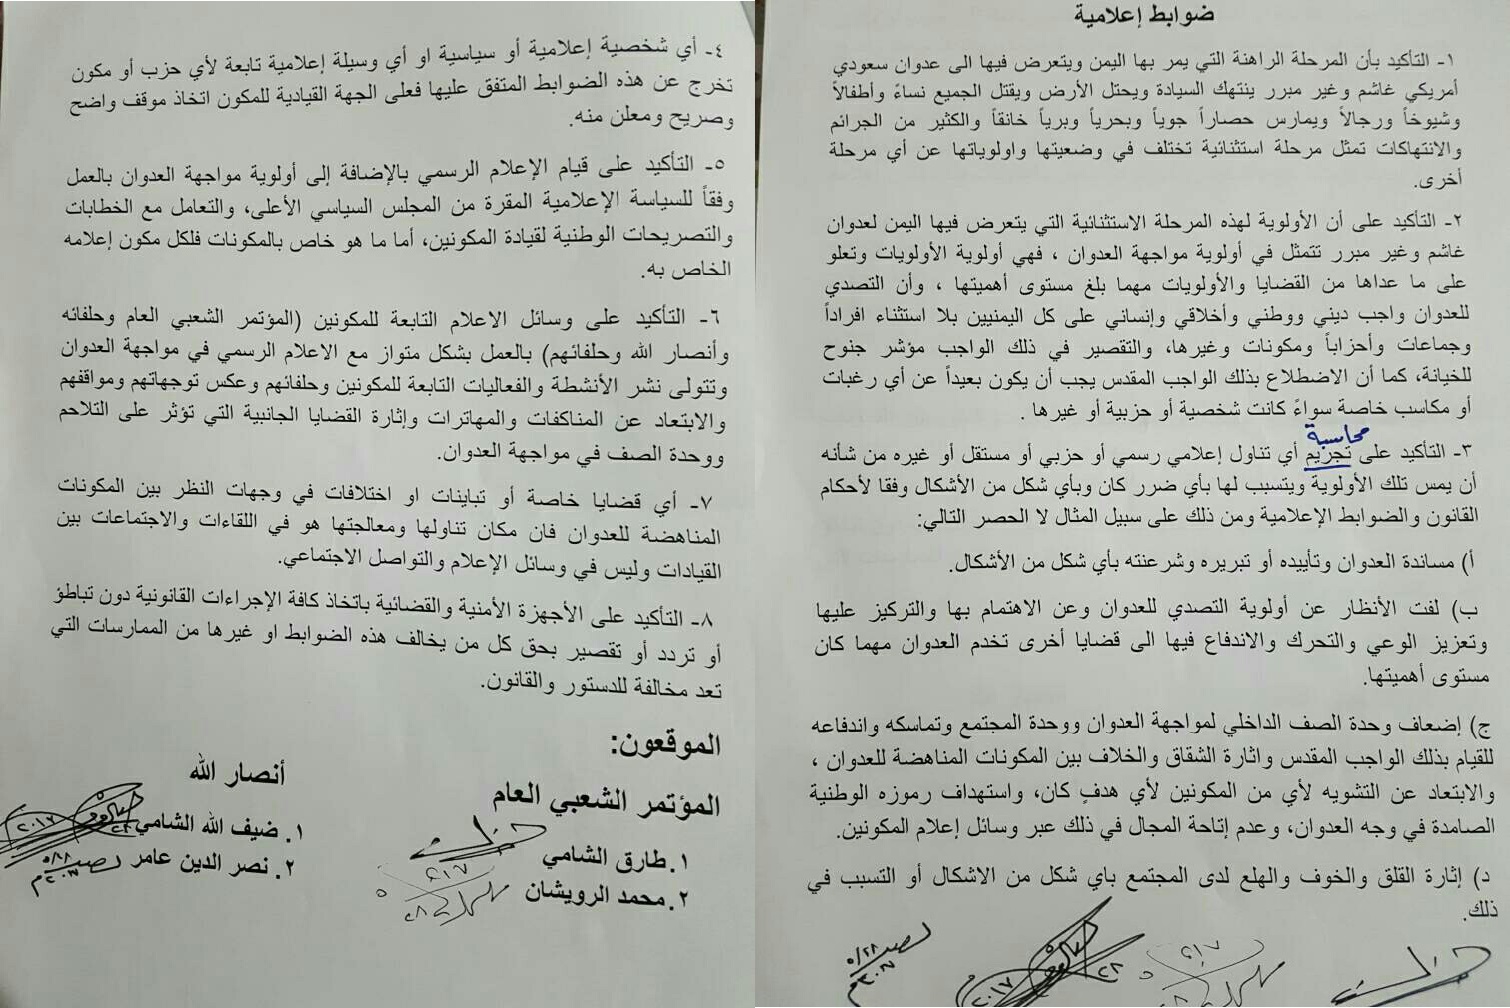 ضوابط إعلامية
١- التأكيد بأن المرحلة الراهنة التي يمر بها اليمن ويتعرض فيها الى عدوان سعودي
أمريكي غاشم وغير مبرر ينتهك السيادة ويحتل الأرض ويقتل الجميع نساءً وأطفالاً
وشيوخاً ورجالاً ويمارس حصاراً جوياً وبحرياً وبرياً خانقاً والكثير من الجرائم
والانتهاكات تمثل مرحلة استثنائية تختلف في وضعيتها واولوياتها عن أي مرحلة
أخرى.
٢- التأكيد على أن الأولوية لهذه المرحلة الاستثنائية التي يتعرض فيها اليمن لعدوان
غاشم وغير مبرر تتمثل في أولوية مواجهة العدوان ، فهي أولوية الأولويات وتعلو
على ما عداها من القضايا والأولويات مهما بلغ مستوى أهميتها ، وأن التصدي
للعدوان واجب ديني ووطني وأخلاقي وإنساني على كل اليمنيين بلا استثناء افراداً
وجماعات وأحزاباً ومكونات وغيرها، والتقصير في ذلك الواجب مؤشر جنوح
للخيانة، كما أن الاضطلاع بذلك الواجب المقدس يجب أن يكون بعيداً عن أي رغبات
أو مكاسب خاصة سواءً كانت شخصية أو حزبية أو غيرها .
محاسبة
٣- التأكيد على تجريم أي تناول إعلامي رسمي أو حزبي أو مستقل أو غيره من شأنه
أن يمس تلك الأولوية ويتسبب لها بأي ضرر كان وبأي شكل من الأشكال وفقا لأحكام
القانون والضوابط الإعلامية ومن ذلك على سبيل المثال لا الحصر التالي:
أ) مساندة العدوان وتأييده أو تبريره وشرعنته بأي شكل من الأشكال.
ب) لفت الأنظار عن أولوية التصدي للعدوان وعن الاهتمام بها والتركيز عليها
وتعزيز الوعي والتحرك والاندفاع فيها الى قضايا أخرى تخدم العدوان مهما كان
مستوى أهميتها.
ج) إضعاف وحدة الصف الداخلي لمواجهة العدوان ووحدة المجتمع وتماسكه واندفاعه
للقيام بذلك الواجب المقدس واثارة الشقاق والخلاف بين المكونات المناهضة للعدوان ،
والابتعاد عن التشويه لأي من المكونين لأي هدفٍ كان، واستهداف رموزه الوطنية
الصامدة في وجه العدوان، وعدم إتاحة المجال في ذلك عبر وسائل إعلام المكونين.
د) إثارة القلق والخوف والهلع لدى المجتمع باي شكل من الاشكال أو التسبب في
ذلك.
٢٠١٧
٤- أي شخصية إعلامية أو سياسية او أي وسيلة إعلامية تابعة لأي حزب أو مكون
تخرج عن هذه الضوابط المتفق عليها فعلى الجهة القيادية للمكون اتخاذ موقف واضح
وصريح ومعلن منه.
٥- التأكيد على قيام الإعلام الرسمي بالإضافة إلى أولوية مواجهة العدوان بالعمل
وفقاً للسياسة الإعلامية المقرة من المجلس السياسي الأعلى، والتعامل مع الخطابات
والتصريحات الوطنية لقيادة المكونين، أما ما هو خاص بالمكونات فلكل مكون إعلامه
الخاص به.
٦- التأكيد على وسائل الاعلام التابعة للمكونين (المؤتمر الشعبي العام وحلفائه
وأنصار الله وحلفائهم) بالعمل بشكل متواز مع الاعلام الرسمي في مواجهة العدوان
وتتولى نشر الأنشطة والفعاليات التابعة للمكونين وحلفائهم وعكس توجهاتهم ومواقفهم
والابتعاد عن المناكفات والمهاترات وإثارة القضايا الجانبية التي تؤثر على التلاحم
ووحدة الصف في مواجهة العدوان.
٧- أي قضايا خاصة أو تباينات او اختلافات في وجهات النظر بين المكونات
المناهضة للعدوان فان مكان تناولها ومعالجتها هو في اللقاءات والاجتماعات بين
القيادات وليس في وسائل الإعلام والتواصل الاجتماعي.
٨- التأكيد على الأجهزة الأمنية والقضائية باتخاذ كافة الإجراءات القانونية دون تباطؤ
أو تردد أو تقصير بحق كل من يخالف هذه الضوابط او غيرها من الممارسات التي
تعد مخالفة للدستور والقانون.
الموقعون:
المؤتمر الشعبي العام
١. طارق الشامي
٢. محمد الرويشان
أنصار الله
١. ضيف الله الشامي
٢. نصر الدين عامر
٢٠١٧